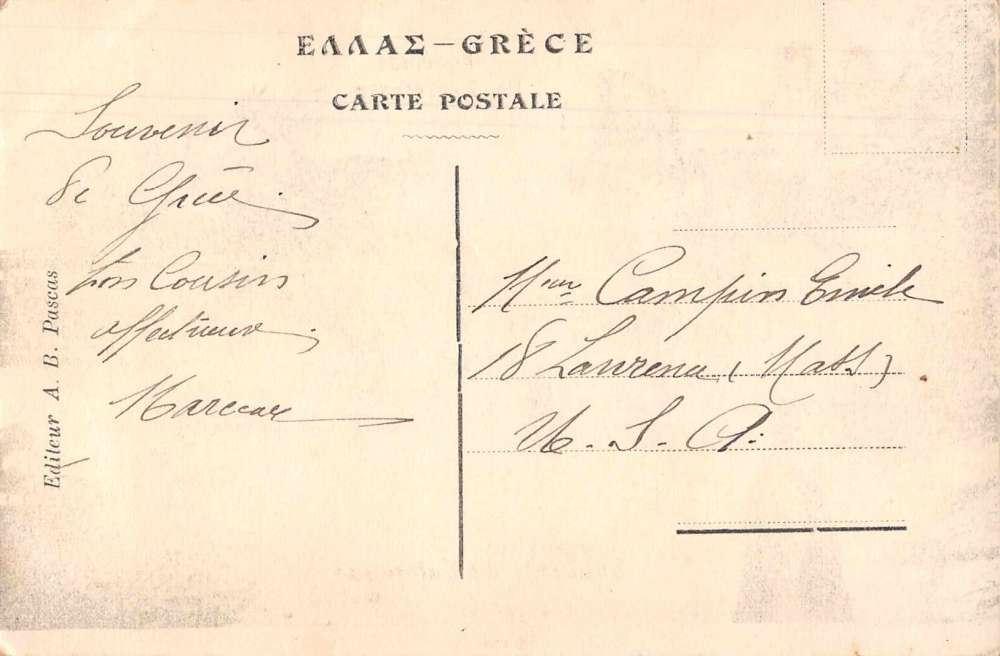 ΕΛΛΑΣ–GRÈCE
CARTE POSTALE
Souvenir
de Grèce.
ton Cousin
affectueux.
Editeur A. B. Pascas
Mme Campin Emile
18 Lawrence (Mass)
U. S. A.